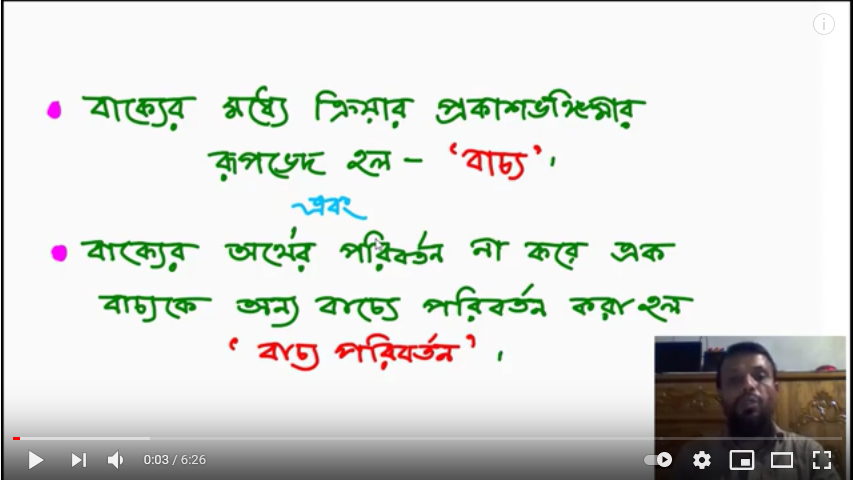 বাক্যের মধ্যে ক্রিয়ার প্রকাশভঙ্গিমার
রূপভেদ হল – ‘বাচ্য’ ।
এবং
বাক্যের অর্থের পরিবর্তন না করে এক
বাচ্যকে অন্য বাচ্যে পরিবর্তন করা হল
‘বাচ্য পরিবর্তন’ ।
0:03 / 6:26